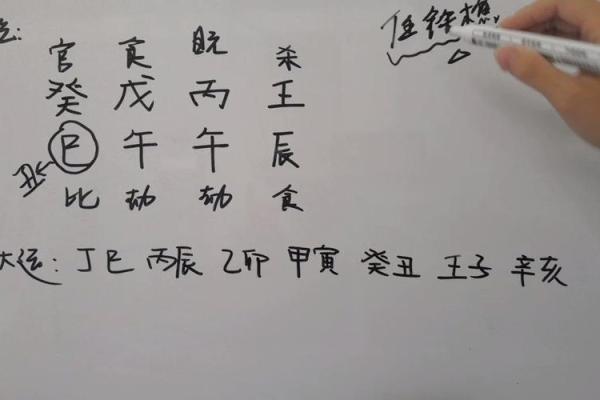 任铁樵
官 食 日元 杀
癸 戊 丙 壬
巳 午 午 辰
比 劫 劫 食
大运: 丁巳 丙辰 乙卯 甲寅 癸丑 壬子 辛亥